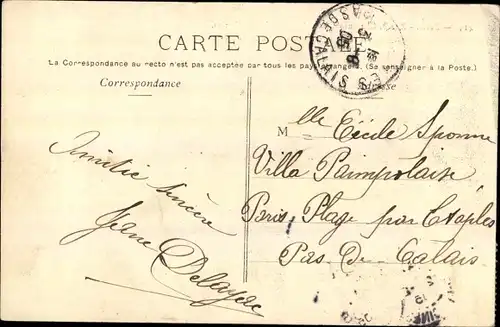 CARTE POSTALE
La Correspondance au recto n'est pas acceptée par tous les pays étrangers. (Se renseigner à la Poste.)
Correspondance
Amitié sincère
Jeane Delayae
Mlle Cécile Sponne
Villa Paimpolaise
Paris-Plage par Etaples
Pas-De-Calais